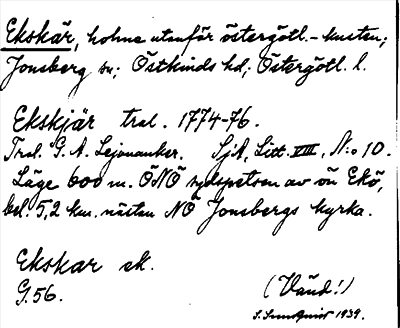 Ekskär, holme utanför östergötl.-kusten;
Jonsberg sn; Östkinds hd; Östergötl. l.
Ekskjär tral. 1774-76.
Tral. G. A. Lejonanker. SjA, Litt. VIII, N:o 10.
Läge 600 m. ÖNÖ sydspetsen av ön Ekö,
bel. 5,2 km. nästan NÖ Jonsbergs kyrka.
Ekskar ek.
G. 56.
(Vänd!)
1939.